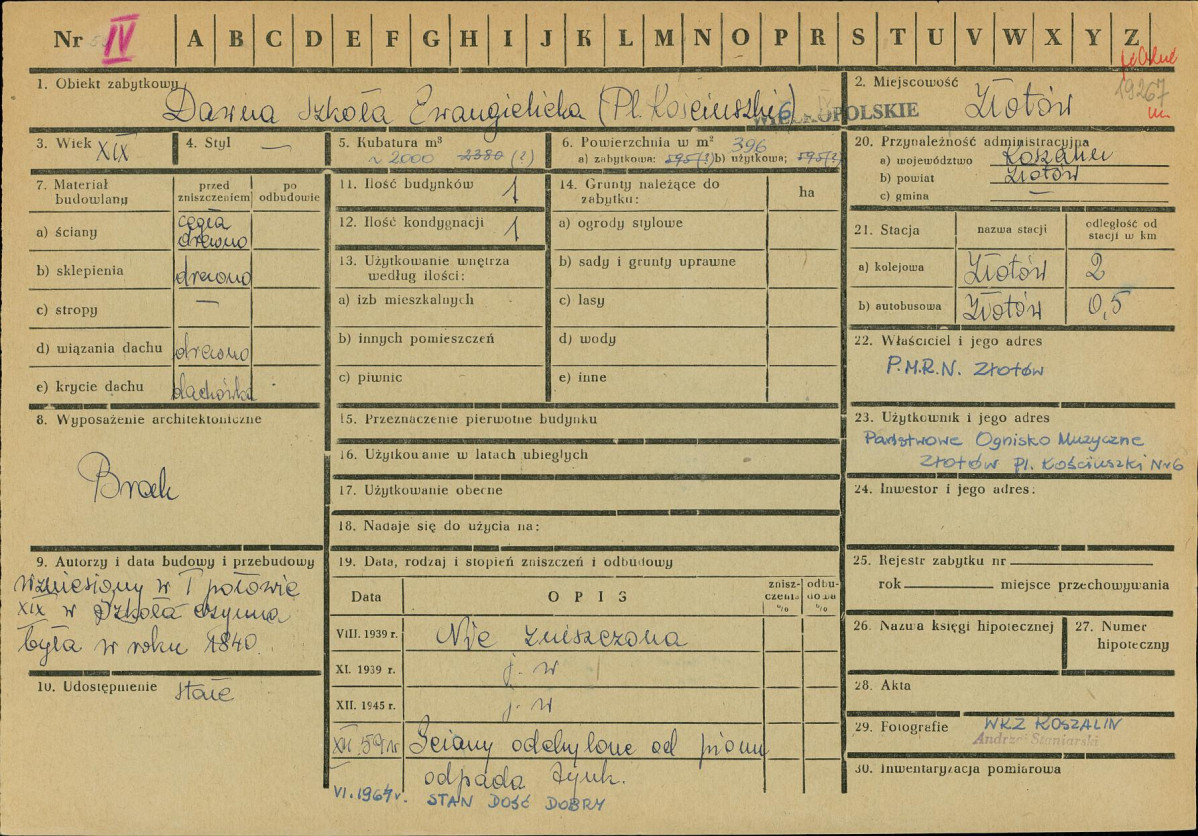 Nr IV A B C D E F G H I J K L M N O P R S T U V W X Y Z
1. Obiekt zabytkowy Dawna Szkoła Ewangielicka (Pl. Kościuszki 6)
WIELKOPOLSKIE
2. Miejscowość Złotów
19267
3. Wiek XIX
4. Styl —
5. Kubatura m³ ~ 2000 2380 (?)
6. Powierzchnia w m² 396
a) zabytkowa: 595(?) b) użytkowa: 595(?)
7. Materiał budowlany
przed zniszczeniem
po odbudowie
a) ściany cegła drewno
b) sklepienia drewno
c) stropy —
d) wiązania dachu drewno
e) krycie dachu dachówka
8. Wyposażenie architektoniczne
Brak
9. Autorzy i data budowy i przebudowy
Wzniesiony w I połowie
XIX w Szkoła czynna
była w roku 1840.
10. Udostępnienie stałe
11. Ilość budynków 1
12. Ilość kondygnacji 1
13. Użytkowanie wnętrza według ilości:
a) izb mieszkalnych
b) innych pomieszczeń
c) piwnic
14. Grunty należące do zabytku:
ha
a) ogrody stylowe
b) sady i grunty uprawne
c) lasy
d) wody
e) inne
15. Przeznaczenie pierwotne budynku
16. Użytkowanie w latach ubiegłych
17. Użytkowanie obecne
18. Nadaje się do użycia na:
19. Data, rodzaj i stopień zniszczeń i odbudowy
Data
OPIS
zniszczenia %
odbudowa %
VIII. 1939 r. Nie zniszczona
XI. 1939 r. j. w
XII. 1945 r. j. w
XII. 59 r Ściany odchylone od pionu
odpada tynk.
VI. 1964 r. STAN DOŚĆ DOBRY
20. Przynależność administracyjna
a) województwo Koszalin
b) powiat Złotów
c) gmina —
21. Stacja
nazwa stacji
odległość od stacji w km
a) kolejowa Złotów 2
b) autobusowa Złotów 0,5
22. Właściciel i jego adres
P.M.R.N. Złotów
23. Użytkownik i jego adres
Państwowe Ognisko Muzyczne
Złotów Pl. Kościuszki Nr 6
24. Inwestor i jego adres:
25. Rejestr zabytku nr
rok miejsce przechowywania
26. Nazwa księgi hipotecznej
27. Numer hipoteczny
28. Akta
29. Fotografie WKZ KOSZALIN
Andrzej Staniarski
30. Inwentaryzacja pomiarowa